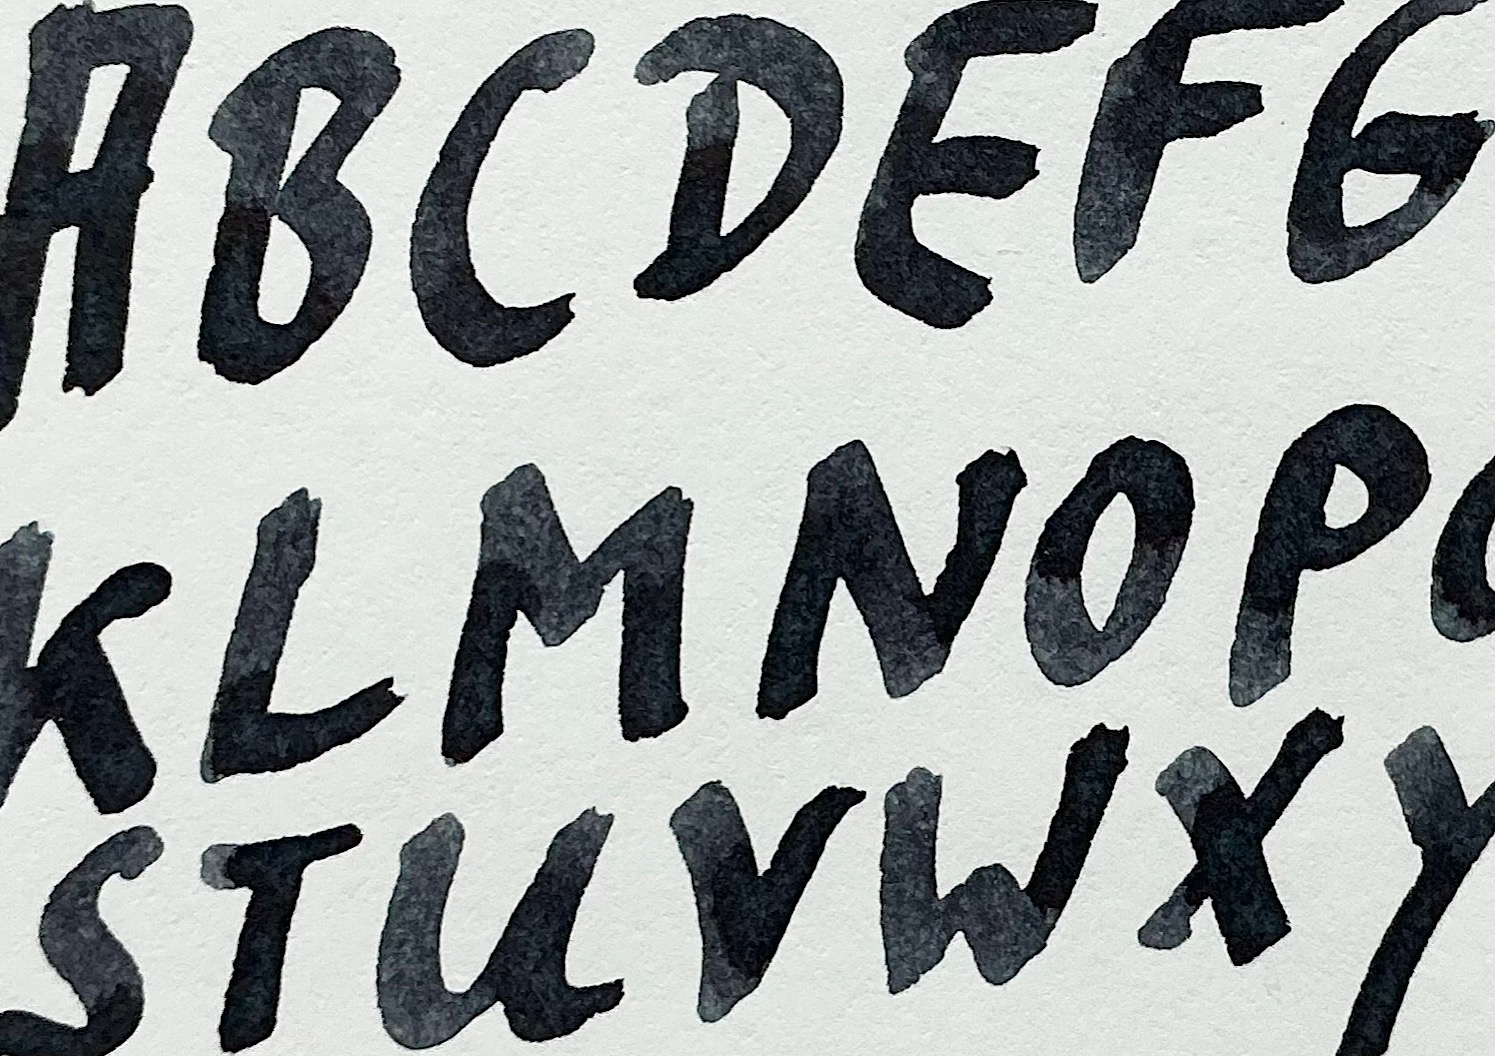 ABCDEFG
KLMNOPQ
STUVWXY